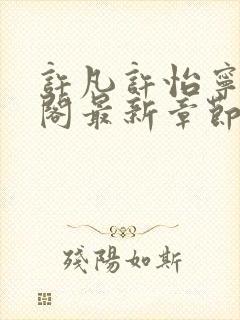 許凡許怡寧
閣最新章節
殘陽如斯